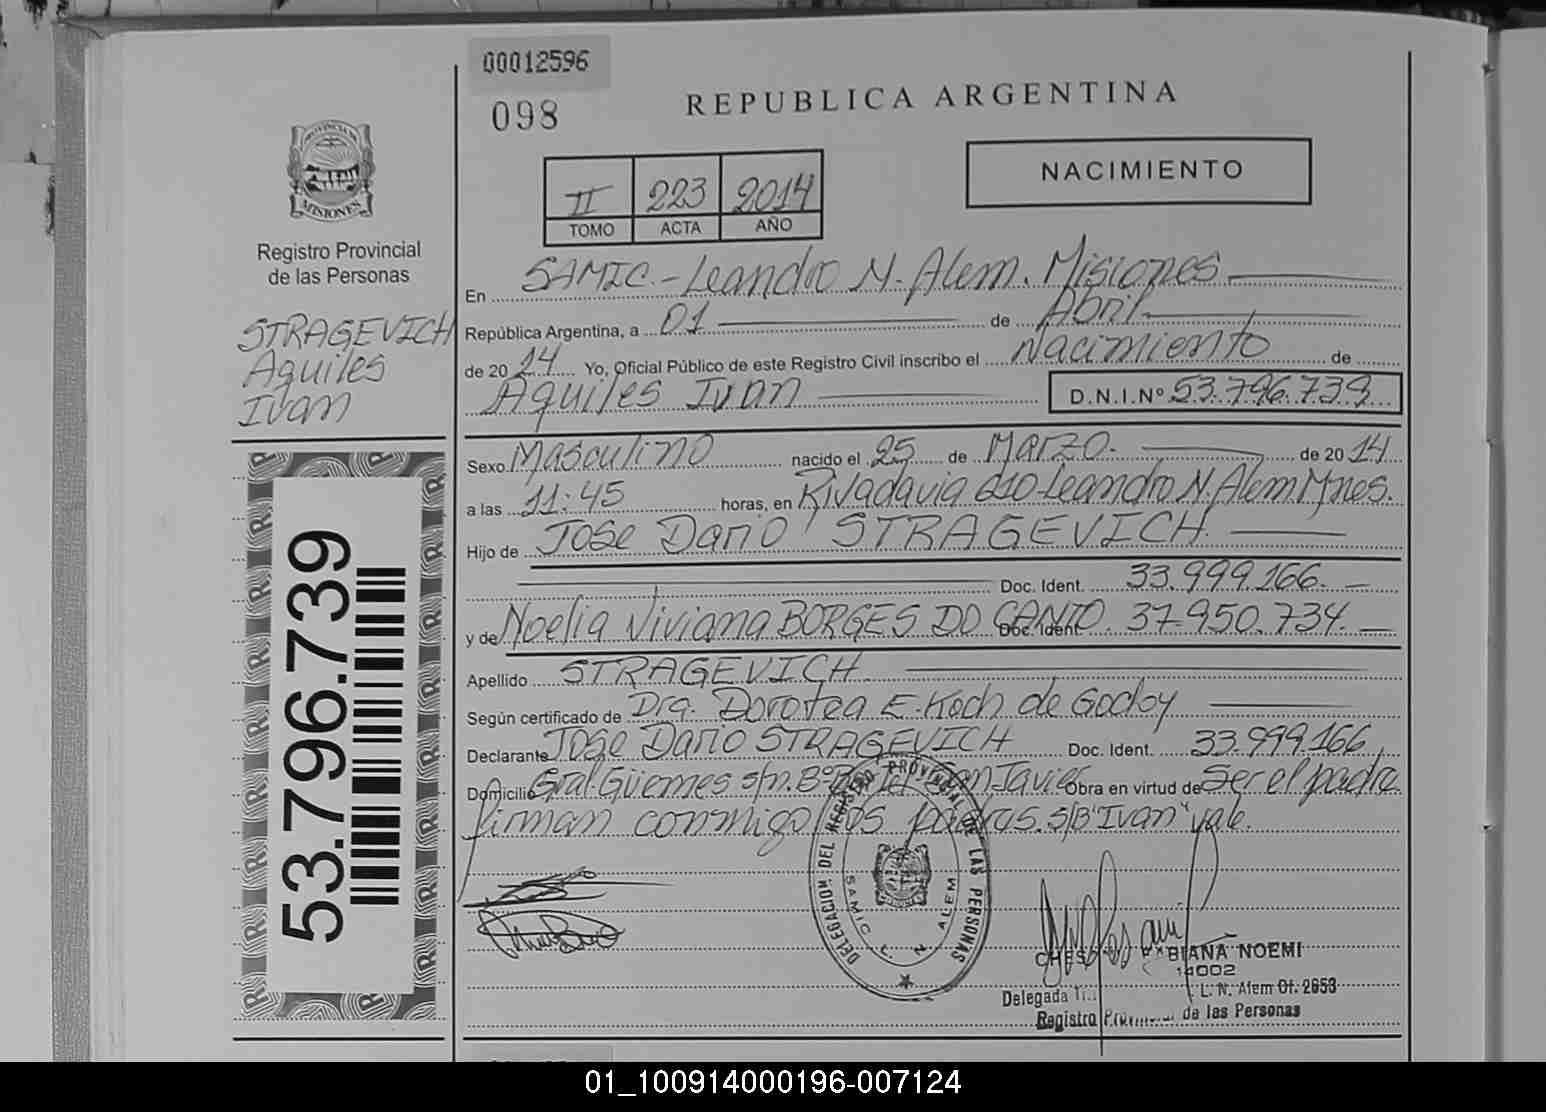 00012596
098
REPUBLICA ARGENTINA
NACIMIENTO
II 223 2014
TOMO ACTA AÑO
PROVINCIA DE
MISIONES
Registro Provincial
de las Personas
STRAGEVICH
Aquiles
Ivan
53.796.739
En SAMIC.-Leandro N. Alem. Misiones
República Argentina, a 01 de Abril
de 2014 Yo, Oficial Público de este Registro Civil inscribo el Nacimiento de
Aquiles Ivan D.N.I.Nº 53.796.739
Sexo Masculino nacido el 25 de Marzo. de 2014
a las 11:45 horas, en Rivadavia 610-Leandro N. Alem Mnes.
Hijo de Jose Dario STRAGEVICH
Doc. Ident. 33.999.166.
y de Noelia Viviana BORGES DO CANTO Doc. Ident. 37.950.734.
Apellido STRAGEVICH
Según certificado de Dra. Dorotea E. Koch de Godoy
Declarante Jose Dario STRAGEVICH Doc. Ident. 33.999.166
Domicilio Gral Güemes s/n. Bº San Javier Obra en virtud de Ser el padre
firman conmigo los padres. s/B "Ivan" vale.
DELEGACION DEL REGISTRO PROVINCIAL DE LAS PERSONAS
SAMIC L. N. ALEM
FABIANA NOEMI
14002
Delegada L. N. Alem Of. 2653
Registro Provincial de las Personas
01_100914000196-007124